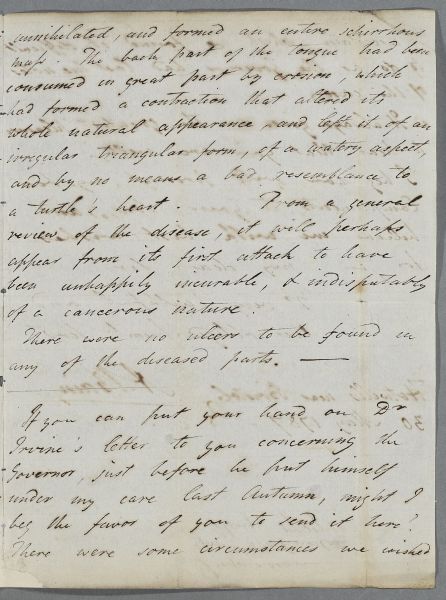 annihilated, and formed an entire schirrhous
mass. The back part of the tongue had been
consumed in great part by erosion, which
had formed a contraction that altered its
whole natural appearance, and left it of an
irregular triangular form, of a watery aspect,
and by no means a bad resemblance to
a turtle's heart. From a general
review of the disease, it will perhaps
appear from its first attack to have
been unhappily incurable, & indisputably
of a cancerous nature.
There were no ulcers to be found in
any of the diseased parts. —
If you can put your hand on Dr
Irvine's letter to you concerning the
Governor, just before he put himself
under my care last Autumn, might I
beg the favor of you to send it here?
There were some circumstances we wished